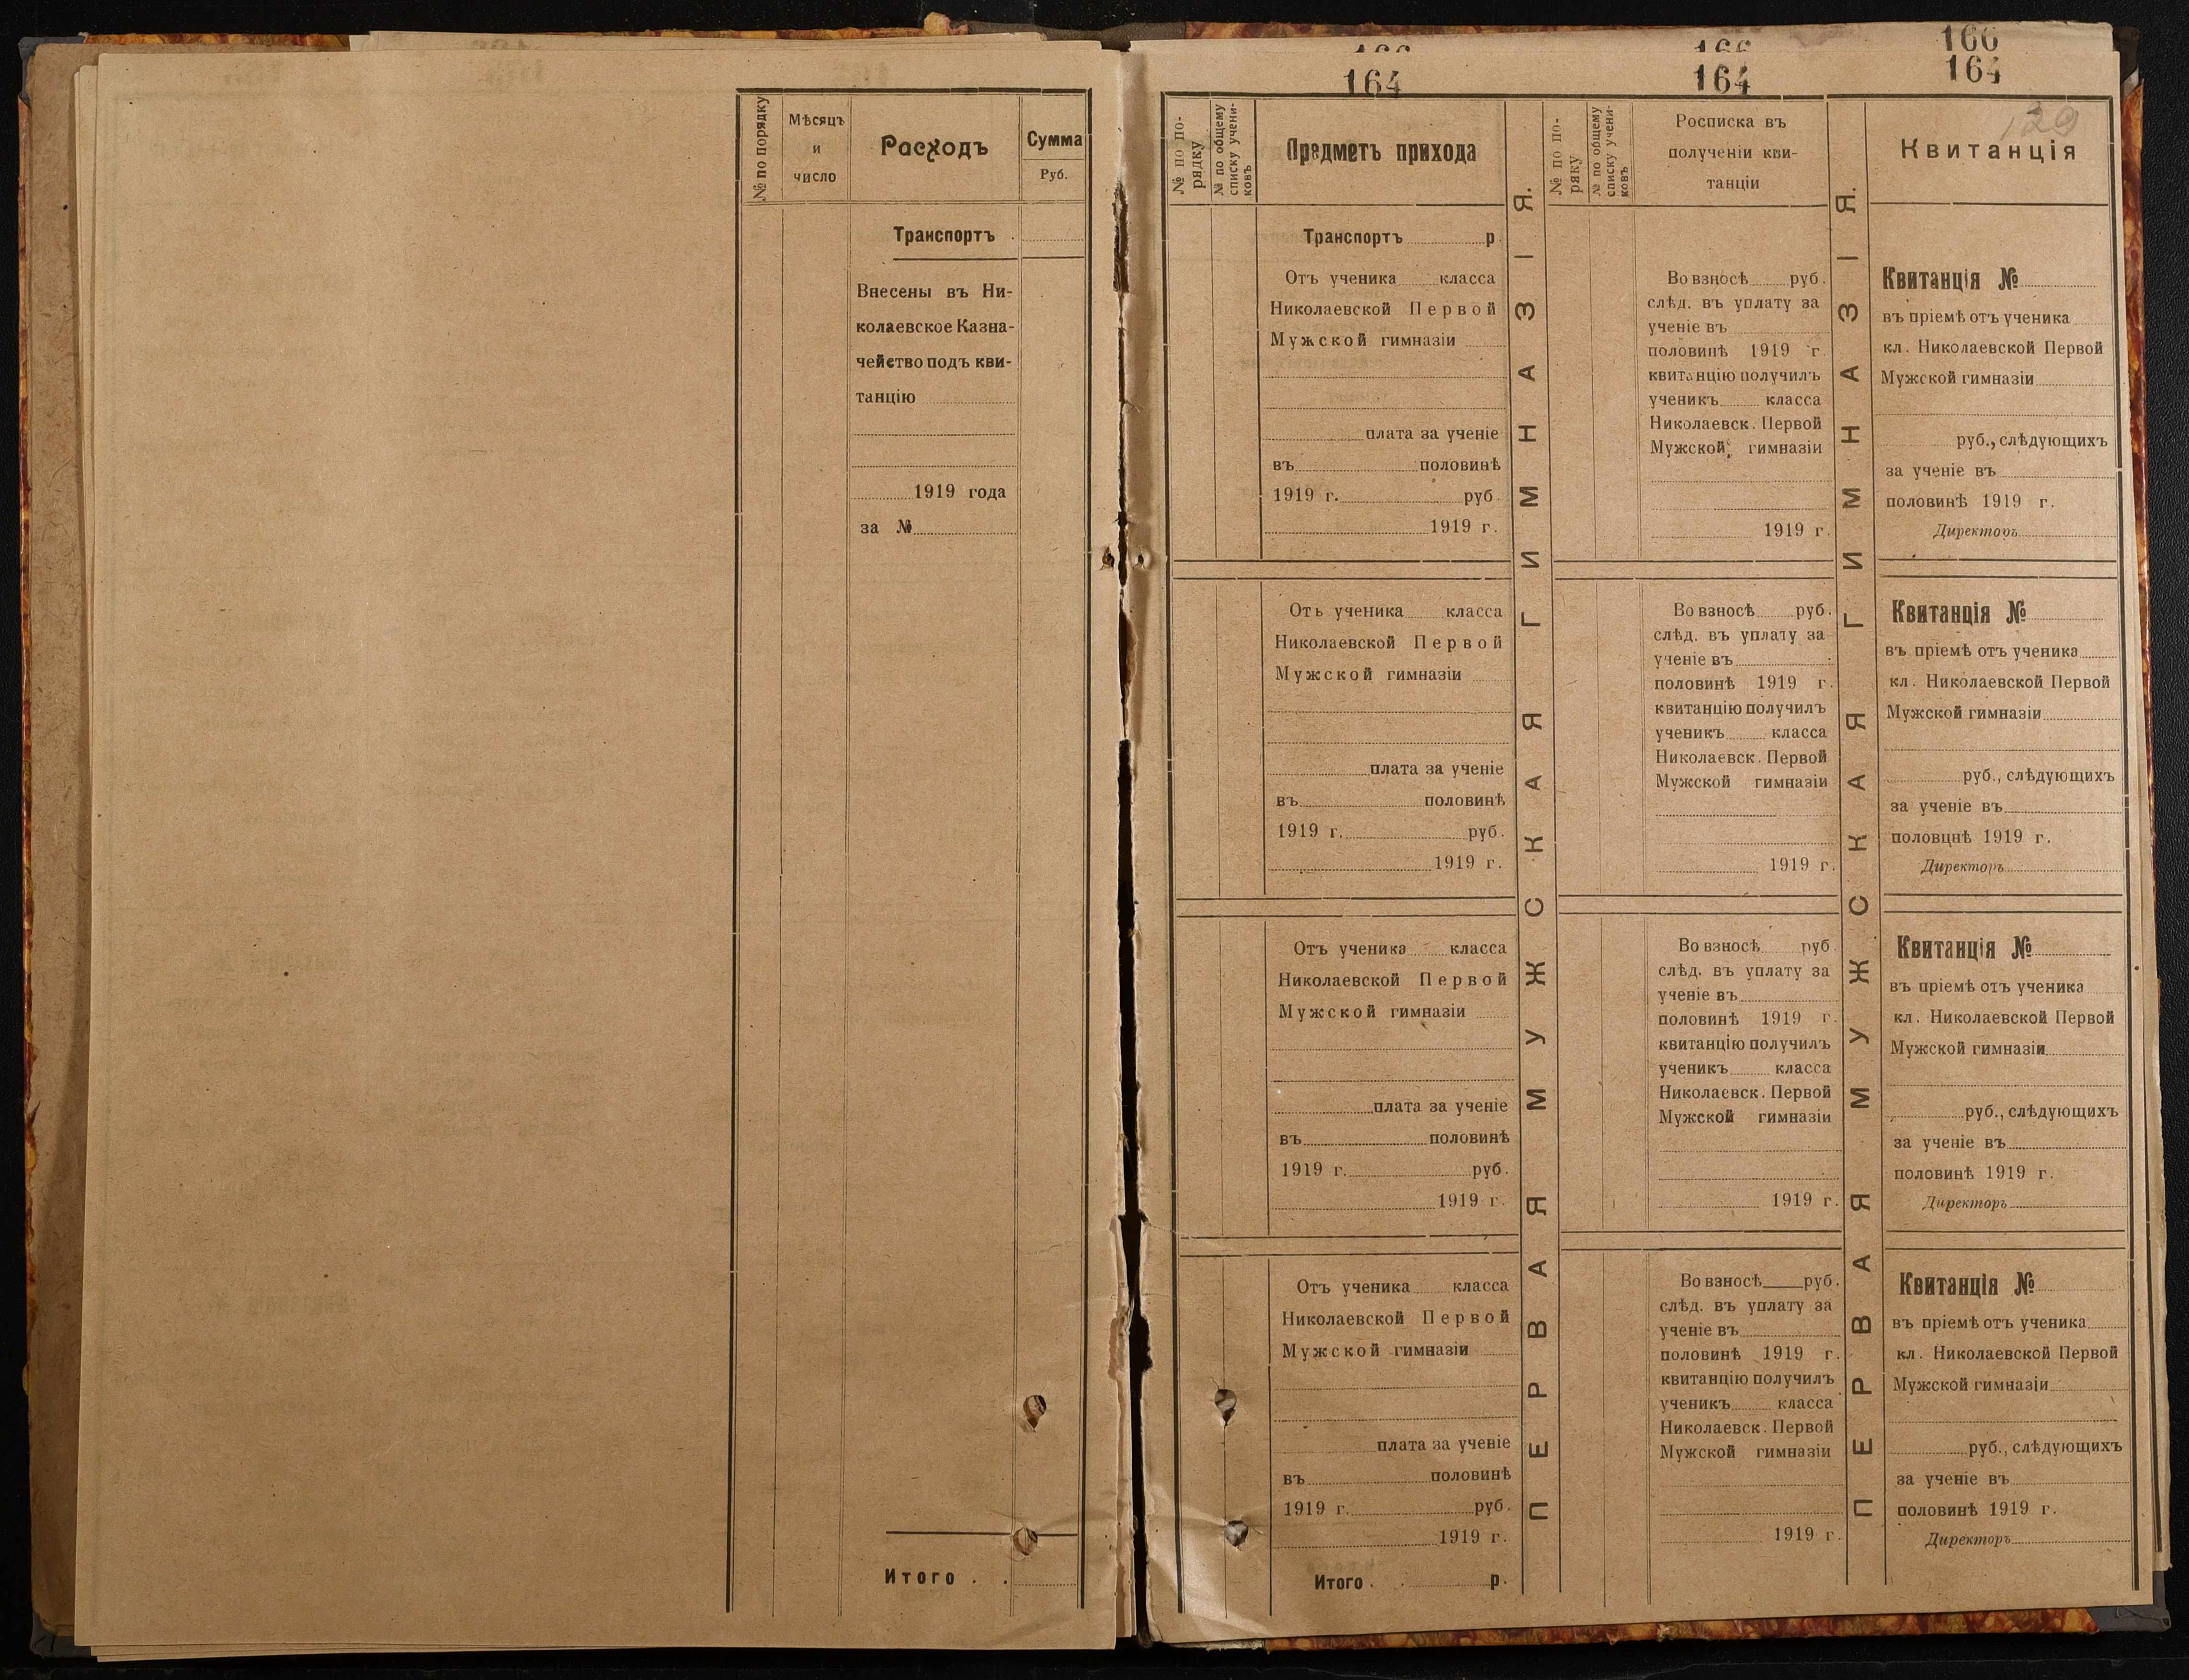 № по порядку
Мѣсяцъ
и
число
Расходъ
Сумма
Руб.
Транспортъ
Внесены въ Ни-
колаевское Казна-
чейство подъ кви-
танцію
1919 года
за №
Итого . .
166
164
№ по по-
рядку
№ по общему
списку учени-
ковъ
Предметъ прихода
Транспортъ р.
Отъ ученика класса
Николаевской Первой
Мужской гимназіи
плата за ученіе
въ половинѣ
1919 г. руб.
1919 г.
Отъ ученика класса
Николаевской Первой
Мужской гимназіи
плата за ученіе
въ половинѣ
1919 г. руб.
1919 г.
Отъ ученика класса
Николаевской Первой
Мужской гимназіи
плата за ученіе
въ половинѣ
1919 г. руб.
1919 г.
Отъ ученика класса
Николаевской Первой
Мужской гимназіи
плата за ученіе
въ половинѣ
1919 г. руб.
1919 г.
Итого . р.
ПЕРВАЯ МУЖСКАЯ ГИМНАЗІЯ.
166
164
№ по по-
ряку
№ по общему
списку учени-
ковъ
Росписка въ
полученіи кви-
танціи
Во взносѣ руб.
слѣд. въ уплату за
ученіе въ
половинѣ 1919 г.
квитанцію получилъ
ученикъ класса
Николаевск. Первой
Мужской гимназіи
1919 г.
Во взносѣ руб.
слѣд. въ уплату за
ученіе въ
половинѣ 1919 г.
квитанцію получилъ
ученикъ класса
Николаевск. Первой
Мужской гимназіи
1919 г.
Во взносѣ руб
слѣд. въ уплату за
ученіе въ
половинѣ 1919 г.
квитанцію получилъ
ученикъ класса
Николаевск. Первой
Мужской гимназіи
1919 г.
Во взносѣ руб.
слѣд. въ уплату за
ученіе въ
половинѣ 1919 г.
квитанцію получилъ
ученикъ класса
Николаевск. Первой
Мужской гимназіи
1919 г.
ПЕРВАЯ МУЖСКАЯ ГИМНАЗІЯ.
166
164
129
Квитанція
Квитанція №
въ пріемѣ отъ ученика
кл. Николаевской Первой
Мужской гимназіи
руб., слѣдующихъ
за ученіе въ
половинѣ 1919 г.
Директоръ
Квитанція №
въ пріемѣ отъ ученика
кл. Николаевской Первой
Мужской гимназіи
руб., слѣдующихъ
за ученіе въ
половцнѣ 1919 г.
Директоръ
Квитанція №
въ пріемѣ отъ ученика
кл. Николаевской Первой
Мужской гимназіи
руб., слѣдующихъ
за ученіе въ
половинѣ 1919 г.
Директоръ
Квитанція №
въ пріемѣ отъ ученика
кл. Николаевской Первой
Мужской гимназіи
руб., слѣдующихъ
за ученіе въ
половинѣ 1919 г.
Директоръ